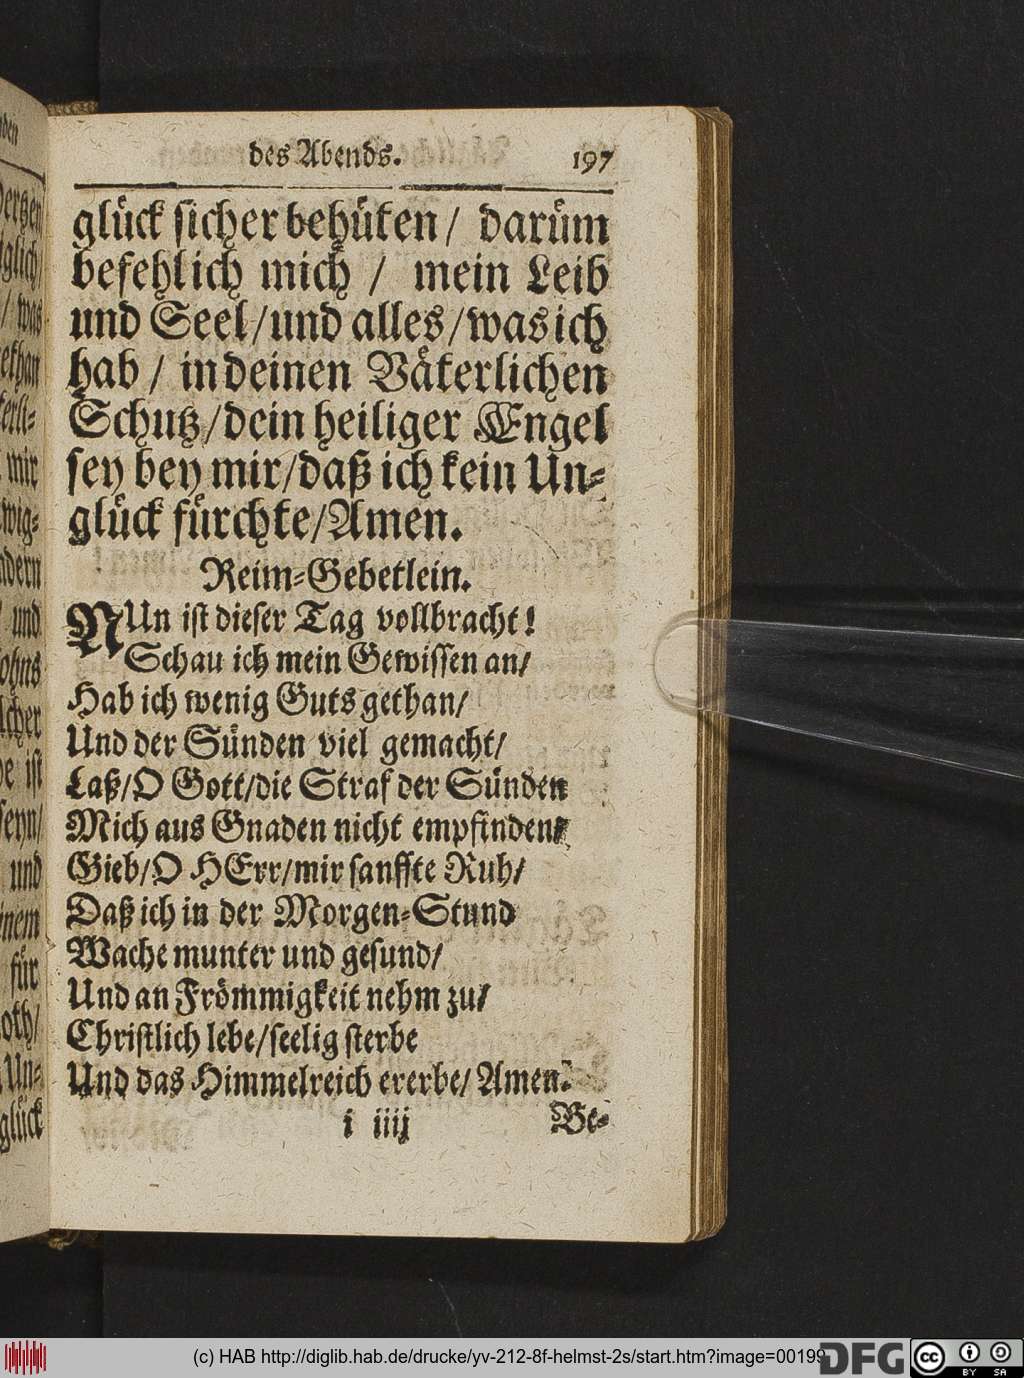 des Abends. 197
glück sicher behüten / darüm
befehl ich mich / mein Leib
und Seel/und alles/was ich
hab / in deinen Väterlichen
Schutz/dein heiliger Engel
sey bey mir/daß ich kein Un-
glück fürchte/Amen.
Reim-Gebetlein.
NUn ist dieser Tag vollbracht!
Schau ich mein Gewissen an/
Hab ich wenig Guts gethan/
Und der Sünden viel gemacht/
Laß/O Gott/die Straf der Sünden
Mich aus Gnaden nicht empfinden/
Gieb/O HErr/mir sanffte Ruh/
Daß ich in der Morgen-Stund
Wache munter und gesund/
Und an Frömmigkeit nehm zu/
Christlich lebe/seelig sterbe
Und das Himmelreich ererbe/ Amen.
i iiij Be-
(c) HAB http://diglib.hab.de/drucke/yv-212-8f-helmst-2s/start.htm?image=00199
DFG
cc BY SA